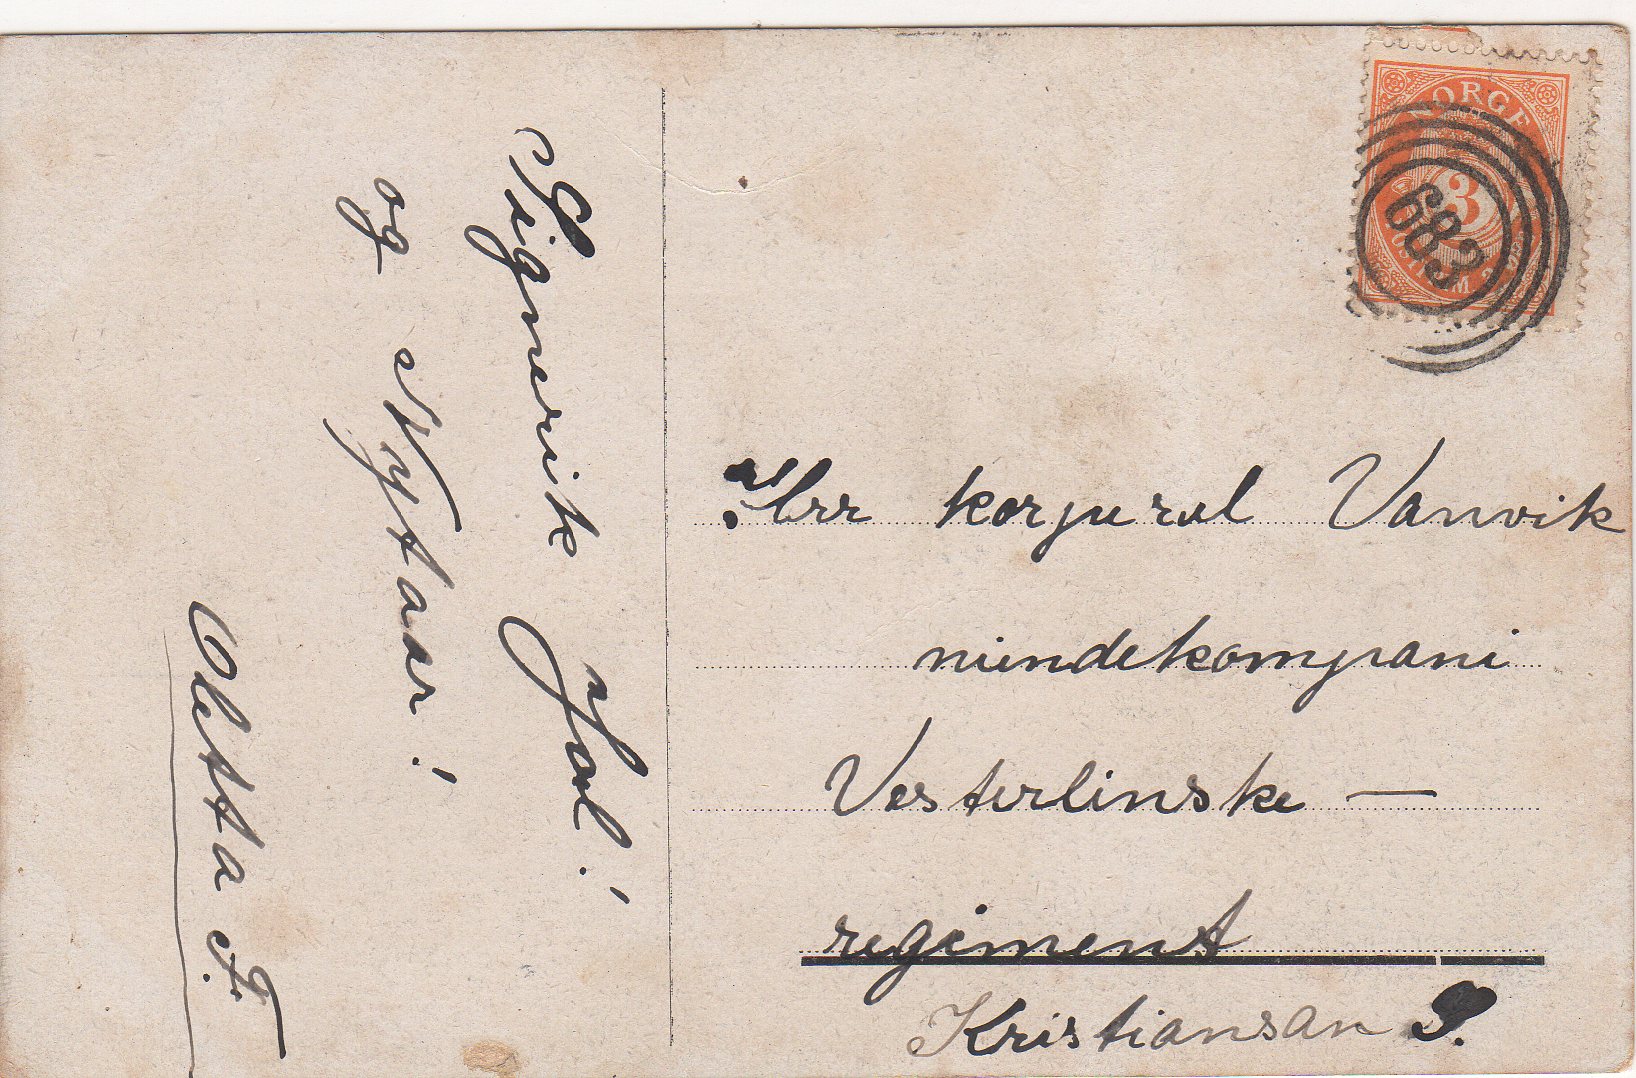 Signerik Jol!
og Nyttaar!
Oletta F.
NORGE
3
683
Herr korpural Vanvik
niendekompani
Vesterlinske —
regiment
Kristiansan S.